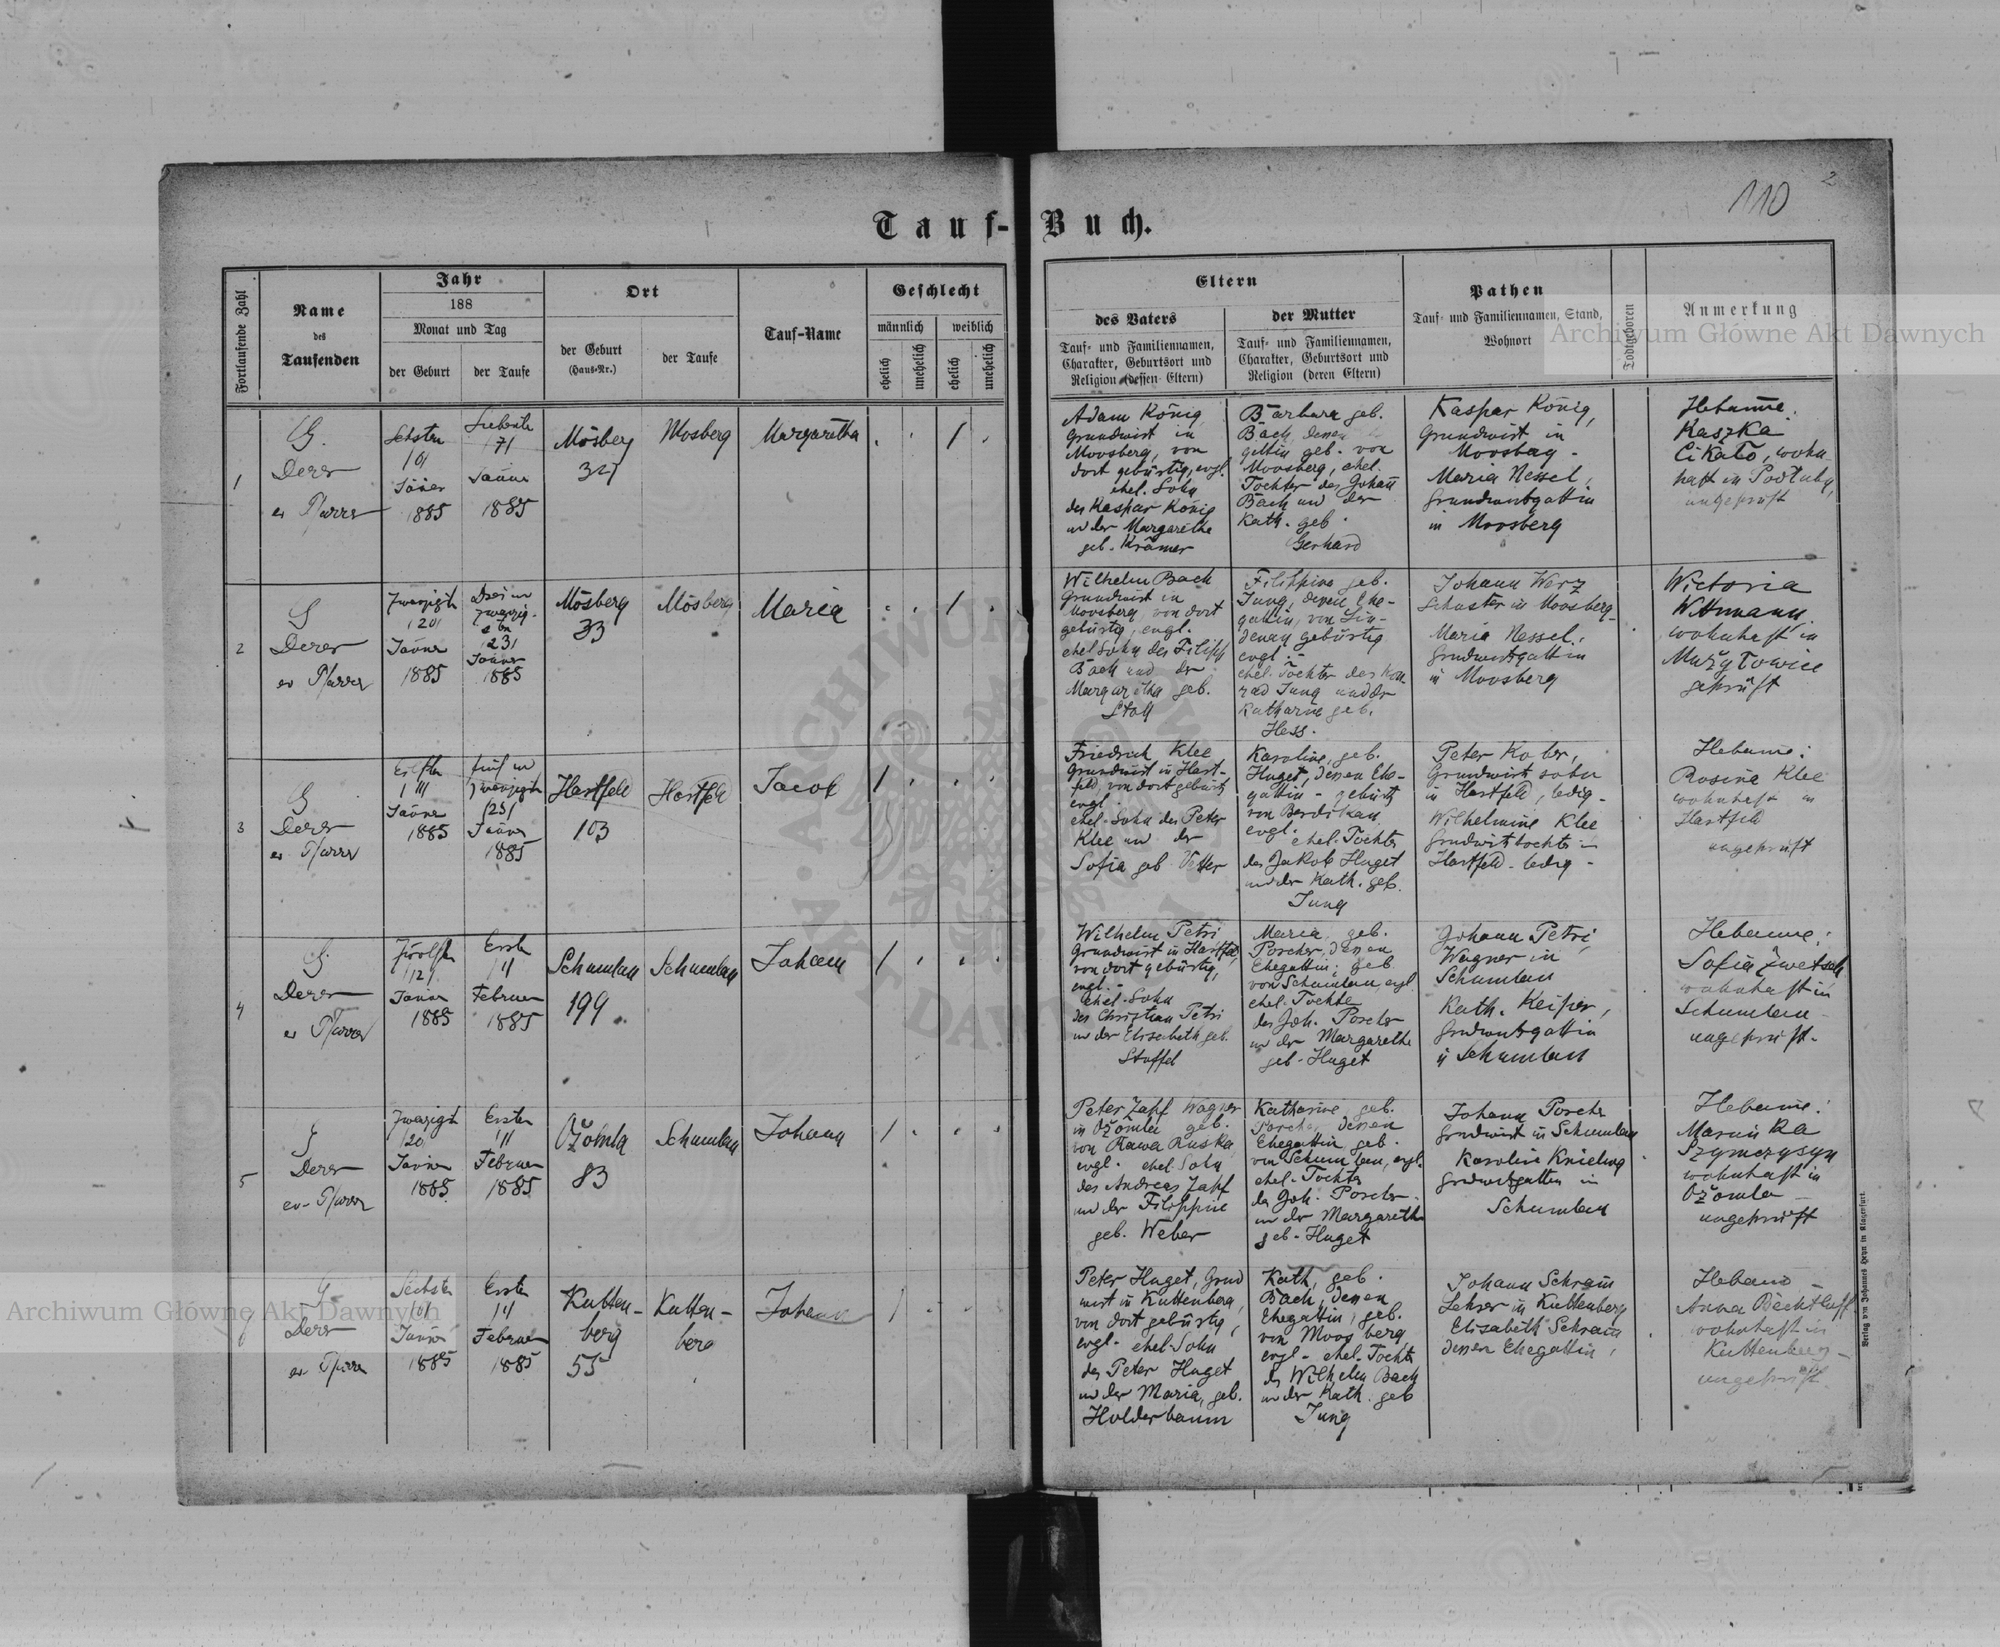 110
2
Tauf-Buch.
Fortlaufende Zahl
Name
des
Taufenden
Jahr
188
Monat und Tag
der Geburt
der Taufe
Ort
der Geburt
(Haus-Nr.)
der Taufe
Tauf-Name
Geschlecht
männlich
weiblich
ehelich
unehelich
ehelich
unehelich
Eltern
des Vaters
Tauf- und Familiennamen,
Charakter, Geburtsort und
Religion (dessen Eltern)
der Mutter
Tauf- und Familiennamen,
Charakter, Geburtsort und
Religion (deren Eltern)
Pathen
Tauf- und Familiennamen, Stand,
Wohnort
Todtgeboren
Anmerkung
Archiwum Główne Akt Dawnych
1
G.
Derer
ev Pfarrer
Jäner
1885
1885
Mösberg
Mosberg
Margaretha
Adam König,
Grundwirt in
Moosberg, von
dort gebürtig, evgl.
ehel. Sohn
des Kaspar König
und der Margarethe
geb. Krämer
Barbara geb.
Bach, denen
gattin geb. von
Moosberg, ehel.
Tochter des Johann
Bach und der
Kath. geb.
Gerhard
Kaspar König,
Grundwirt in
Moosberg -
Maria Nessel,
Grundwirtsgattin
in Moosberg
Hebamme:
Kaszka
wohn-
haft in
ungeprüft
2
G
Derer
ev Pfarrer
Zwanzigste
/20/
Jänner
1885
/23/
Jänner
1885
Mösberg
33
Mösberg
Maria
Wilhelm Bach
Grundwirt in
Moosberg, von dort
gebürtig, evgl.
ehel Sohn des Filipp
Bach und der
Margaretha geb.
Stoll
Filippina geb.
Jung, denen Ehe-
gattin, von Lin-
denau gebürtig
evgl. -
ehel. Tochter des Kon-
rad Jung und der
Katharine geb.
Hess.
Johann Worz
Schuster in Moosberg -
Maria Nessel,
Grundwirtsgattin
in Moosberg
Wictoria
Wittmann
wohnhaft in
Mużyłowice
geprüft
3
G
Derer
ev Pfarrer
Eilften
/11/
Jänner
1885
fünf und
zwanzigste
/25/
Jänner
1885
Hartfeld
103
Hartfeld
Jacob
Friedrich Klee
Grundwirt in Hart-
feld, von dort gebürtig
evgl.
ehel. Sohn des Peter
Klee und der
Sofia geb Vetter
Karoline, geb.
Huget, denen Ehe-
gattin - gebürtig
von Berdikau
evgl.
ehel. Tochter
des Jakob Huget
und der Kath. geb.
Jung
Peter Kober,
Grundwirtssohn
in Hartfeld, ledig -
Wilhelmine Klee
Grundwirtstochter in
Hartfeld - ledig -
Hebamme:
Rosina Klee
wohnhaft in
Hartfeld
ungeprüft
4
G.
Derer
ev Pfarrer
Zwölften
/12/
Jänner
1885
Ersten
/1/
Februar
1885
Schumlau
199
Schumlau
Johann
Wilhelm Petri
Grundwirt in Hartfeld,
von dort gebürtig,
evgl. -
ehel. Sohn
des Christian Petri
und der Elisabeth geb.
Stoffel
Maria, geb.
Porcher, denen
Ehegattin, geb.
von Schumlau evgl.
ehel. Tochter
des Joh. Porcher
und der Margarethe
geb. Huget
Johann Petri
Wagner in
Schumlau
Kath. Keiper,
Grundwirtsgattin
in Schumlau
Hebamme:
Sofia Zwetsch
wohnhaft in
Schumlau -
ungeprüft -
5
G
Derer
ev- Pfarrer
Zwanzigste
/20/
Jänner
1885
Ersten
/1/
Februar
1885
Ożomla
83
Schumlau
Johann
Peter Zapf Wagner
in Ożomla geb.
von Rawa Ruska,
evgl. ehel. Sohn
des Andreas Zapf
und der Filippine
geb. Weber
Katharine geb.
Porcher, denen
Ehegattin geb.
von Schumlau, evgl.
ehel. Tochter
des Joh. Porcher -
und der Margarethe
geb. Huget
Johann Porcher
Grundwirt in Schumlau
Karoline Knielung
Grundwirtsgattin in
Schumlau
Hebamme:
Marinka
wohnhaft in
Ożomla -
ungeprüft
6
G
Derer
ev Pfarrer
Sechsten
/6/
Jänner
1885
Ersten
/1/
Februar
1885
Kutten-
berg
55
Kutten-
berg
Johann
Peter Huget, Grund
wirt in Kuttenberg,
von dort gebürtig,
evgl. ehel. Sohn
des Peter Huget
und der Maria, geb.
Holderbaum
Kath, geb.
Bach, denen
Ehegattin, geb.
von Moosberg
evgl. ehel. Tochter
des Wilhelm Bach
und der Kath. geb
Jung
Johann Schram
Lehrer in Kuttenberg
Elisabeth Schram
denen Ehegattin,
Hebamme
Anna Bechtloff
wohnhaft in
Kuttenberg -
ungeprüft
Verlag von Johannes Heyn in Klagenfurt.
Archiwum Główne Akt Dawnych